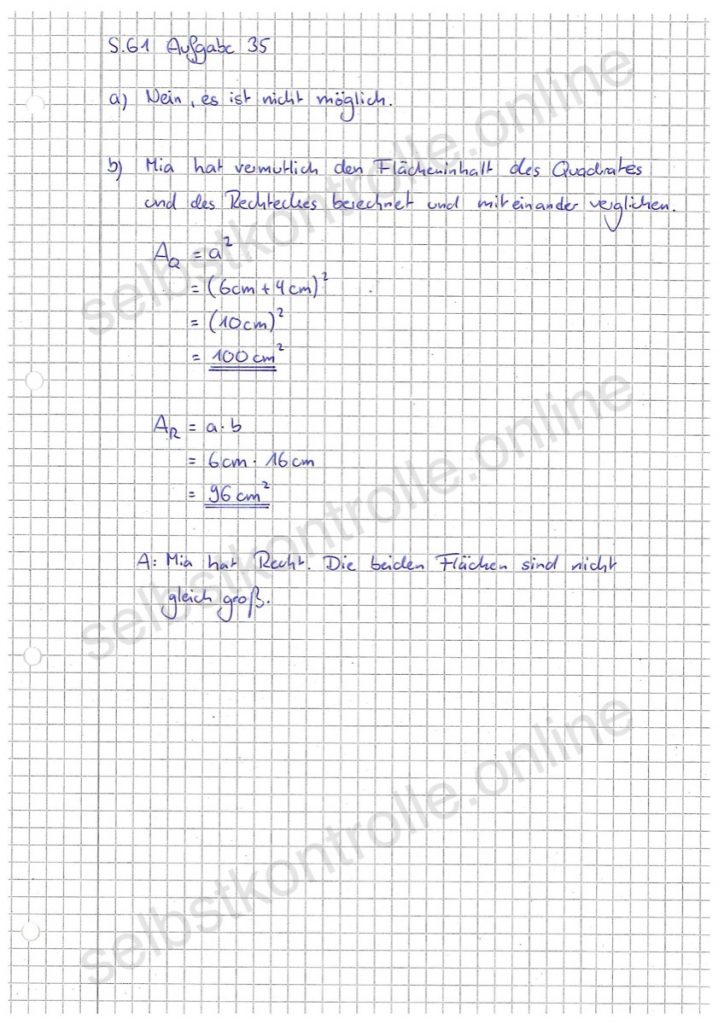 S.61 Aufgabe 35
a) Nein, es ist nicht möglich.
b) Mia hat vermutlich den Flächeninhalt des Quadrates
und des Rechteckes berechnet und miteinander verglichen.
A_Q = a²
= (6cm + 4cm)²
= (10cm)²
= 100cm²
A_R = a · b
= 6cm · 16cm
= 96cm²
A: Mia hat Recht. Die beiden Flächen sind nicht
gleich groß.
selbstkontrolle.online
selbstkontrolle.online
selbstkontrolle.online